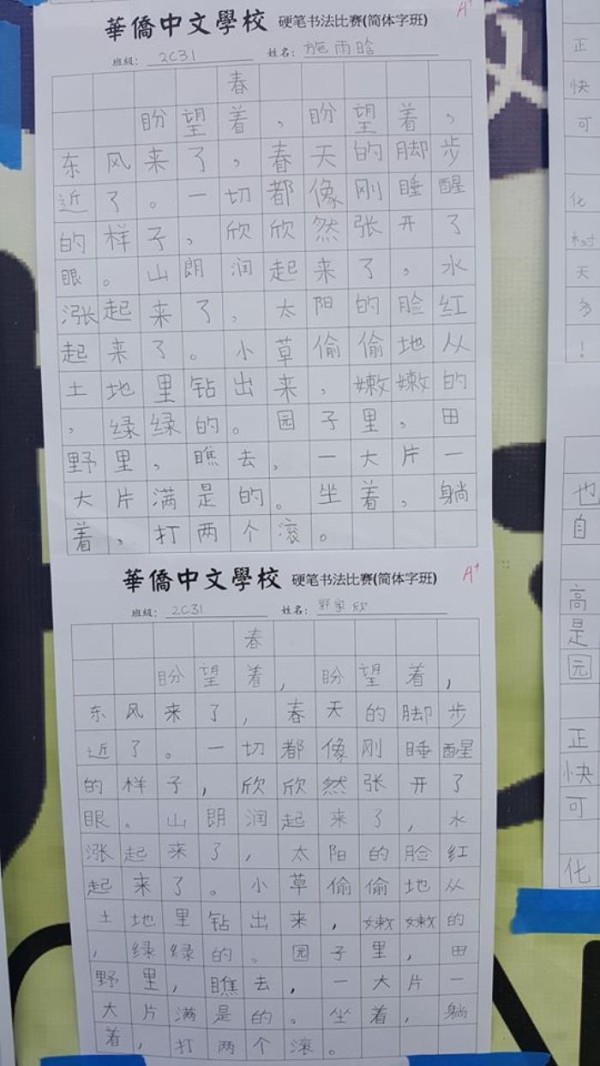 華僑中文學校 硬笔书法比赛(简体字班) A+
班級: 2C31 姓名: 施雨晗
春
盼望着，盼望着，
东风来了，春天的脚步
近了。一切都像刚睡醒
的样子，欣欣然张开了
眼。山朗润起来了，水
涨起来了，太阳的脸红
起来了。小草偷偷地从
土地里钻出来，嫩嫩的
，绿绿的。园子里，田
野里，瞧去，一大片一
大片满是的。坐着，躺
着，打两个滚。
華僑中文學校 硬笔书法比赛(简体字班) A+
班級: 2C31 姓名:
春
盼望着，盼望着，
东风来了，春天的脚步
近了。一切都像刚睡醒
的样子，欣欣然张开了
眼。山朗润起来了，水
涨起来了，太阳的脸红
起来了。小草偷偷地从
土地里钻出来，嫩嫩的
，绿绿的。园子里，田
野里，瞧去，一大片一
大片满是的。坐着，躺
着，打两个滚。
正
快
可
化
天
！
也
自
高
是
园
正
快
可
化